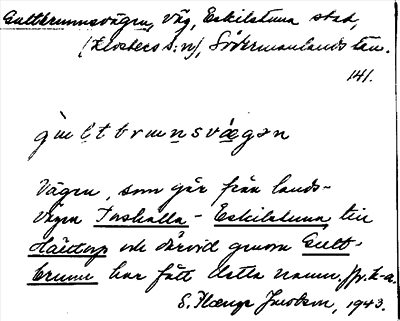 Gultbrunnsvägen, Väg, Eskilstuna stad,
(Klosters s:n), Södermanlands län.
141.
gu̇l̥tbrun̥nsvæ̀gən
Vägen, som går från lands-
vägen Torshälla - Eskilstuna till
och därvid genom Gult-
brunn har fått detta namn.
S. Jacobson, 1943.